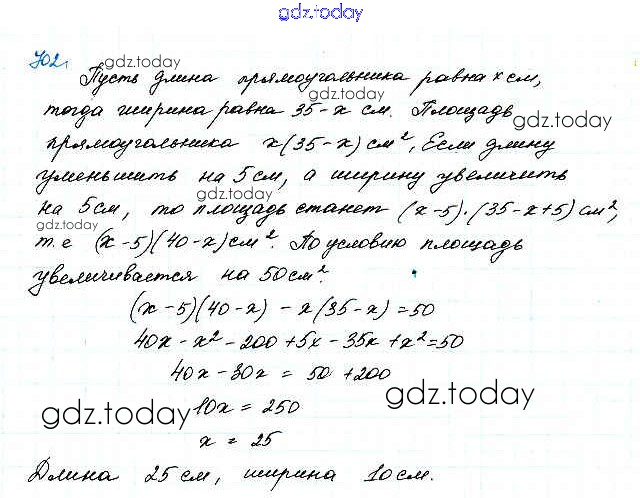 gdz.today
702. gdz.today
Пусть длина прямоугольника равна x см,
gdz.today
тогда ширина равна 35-x см. Площадь
gdz.today
прямоугольника x(35-x) см², Если длину
уменьшить на 5 см, а ширину увеличить
gdz.today
на 5 см, то площадь станет (x-5)·(35-x+5) см²,
gdz.today
т.е (x-5)(40-x) см². По условию площадь
увеличивается на 50 см².
(x-5)(40-x) - x(35-x) = 50
40x - x² - 200 + 5x - 35x + x² = 50
40x - 30x = 50 + 200
gdz.today
gdz.today
10x = 250
x = 25
Длина 25 см, ширина 10 см.